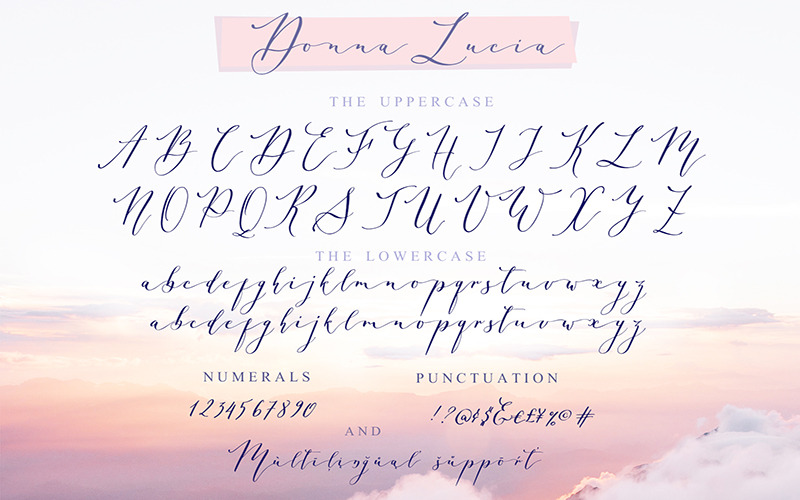 Donna Lucia
THE UPPERCASE
A B C D E F G H I J K L M
N O P Q R S T U V W X Y Z
THE LOWERCASE
abcdefghijklmnopqrstuvwxyz
abcdefghijklmnopqrstuvwxyz
NUMERALS
PUNCTUATION
1234567890
!?@¢$&€£¥%©#
AND
support